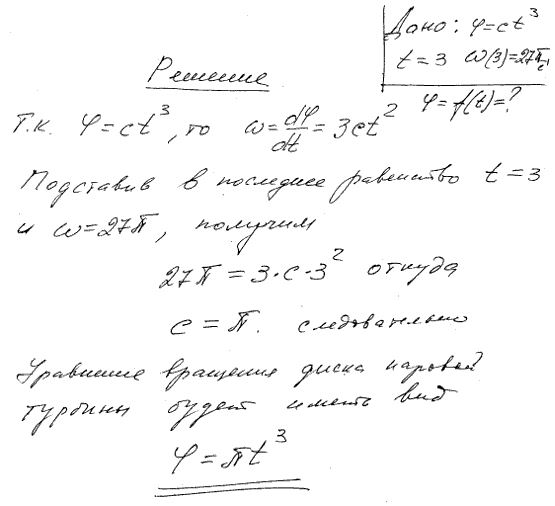 Дано: φ=ct³
t=3 ω(3)=27π/c
φ=f(t)=?
Решение
Т.к. φ=ct³, то ω=dφ/dt=3ct²
Подставив в последнее равенство t=3
и ω=27π, получим
27π=3·c·3² откуда
c=π. следовательно
Уравнение вращения диска паровой
турбины будет иметь вид
φ=πt³